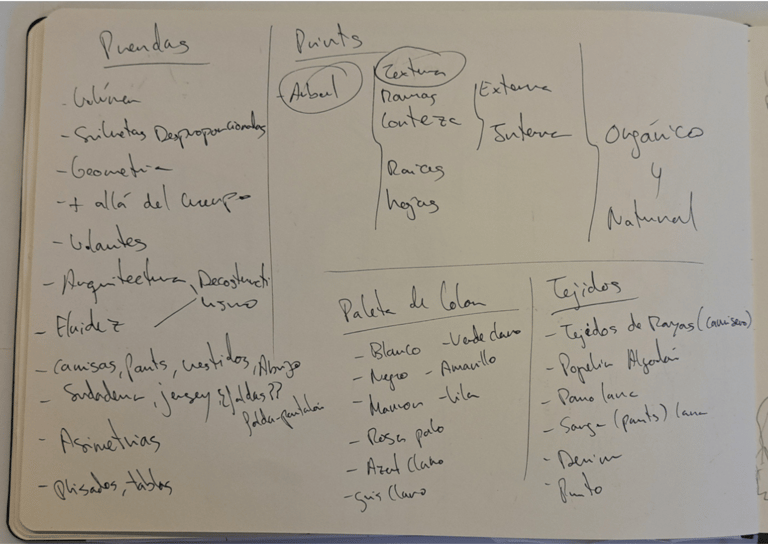 Prendas
- Volúmen
- Siluetas Desproporcionadas
- Geometria
- + allá del cuerpo
- Volantes
- Arquitectura
Decostructi
vismo
- Fluidez
- Camisas, pants, vestidos, Abrigo
- Sudadera, jersey, ¿faldas??
falda-pantalón
- Asimetrias
- plisados, tablas
Prints
- Arbol
Textura
Ramas
Corteza
Raices
hojas
Externa
Interna
Orgánico
y
Natural
Paleta de Color
- Blanco - Verde claro
- Negro - Amarillo
- Marron - Lila
- Rosa palo
- Azul Claro
- gris Claro
Tejidos
- Tejidos de Rayas (camisero)
- Popelin Algodón
- Pano lana
- Sarga (pants) lana
- Denim
- Punto